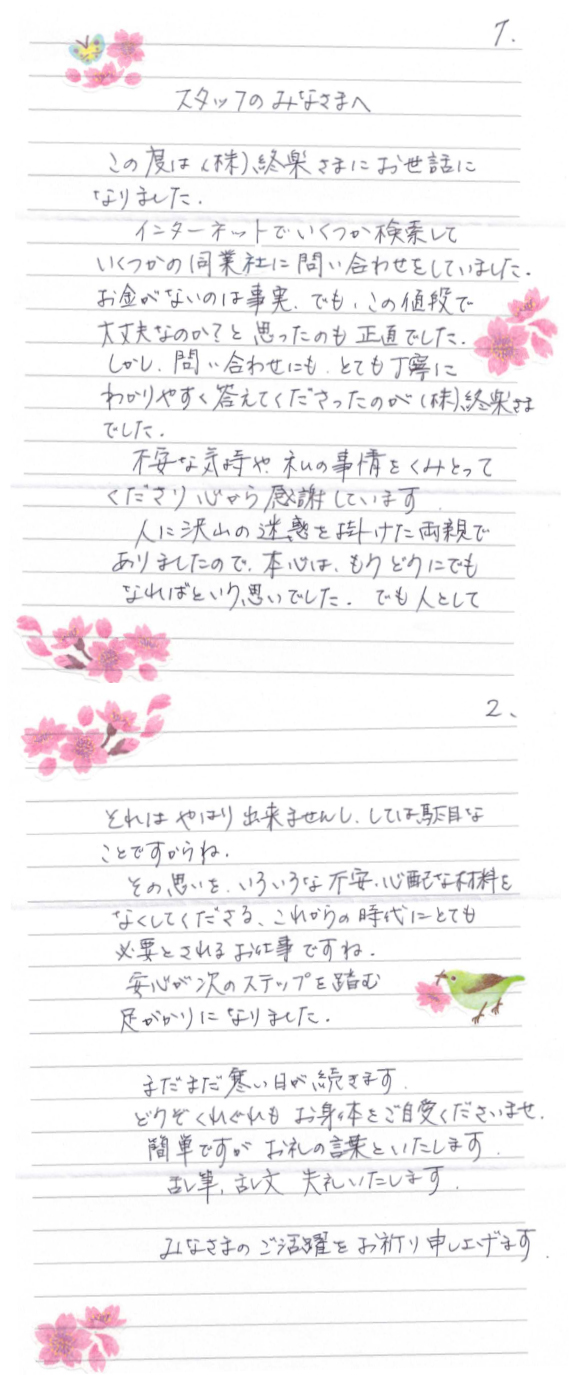 1.
スタッフのみなさまへ
この度は(株)終楽さまにお世話に
なりました.
インターネットでいくつか検索して
いくつかの同業社に問い合わせをしていました.
お金がないのは事実、でも、この値段で
大丈夫なのか?と思ったのも正直でした.
しかし、問い合わせにも、とても丁寧に
わかりやすく答えてくださったのが(株)終楽さま
でした.
不安な気時や、私の事情をくみとって
くださり心から感謝しています.
人に沢山の迷惑を掛けた両親で
ありましたので、本心は、もうどうにでも
なればという思いでした. でも人として
2、
それはやはり出来ませんし、しては駄目な
ことですからね.
その思いを、いろいろな不安、心配な材料を
なくしてくださる、これからの時代にとても
必要とされるお仕事ですね.
安心が次のステップを踏む
足がかりになりました.
まだまだ寒い日が続きます.
どうぞくれぐれもお身体をご自愛くださいませ.
簡単ですがお礼の言葉といたします.
乱筆、乱文 失礼いたします.
みなさまのご活躍をお祈り申し上げます.